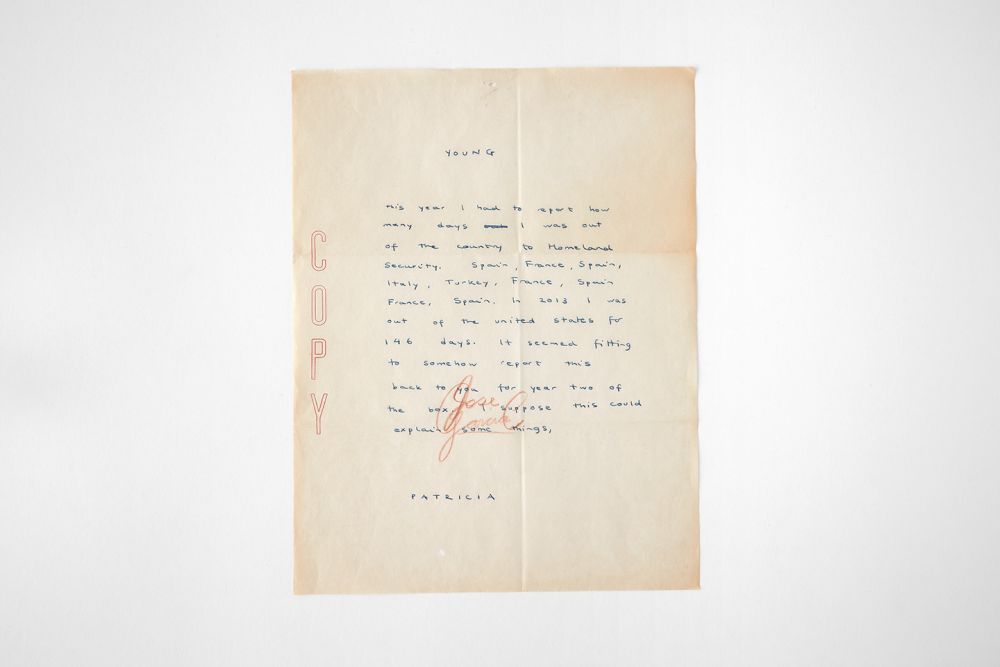 YOUNG
this year I had to report how
many days I was out
of the country to Homeland
Security. Spain, France, Spain,
Italy, Turkey, France, Spain
France, Spain. In 2013 I was
out of the united states for
146 days. It seemed fitting
to somehow report this
back to you for year two of
the box, I suppose this could
explain some things,
Jose
PATRICIA
COPY